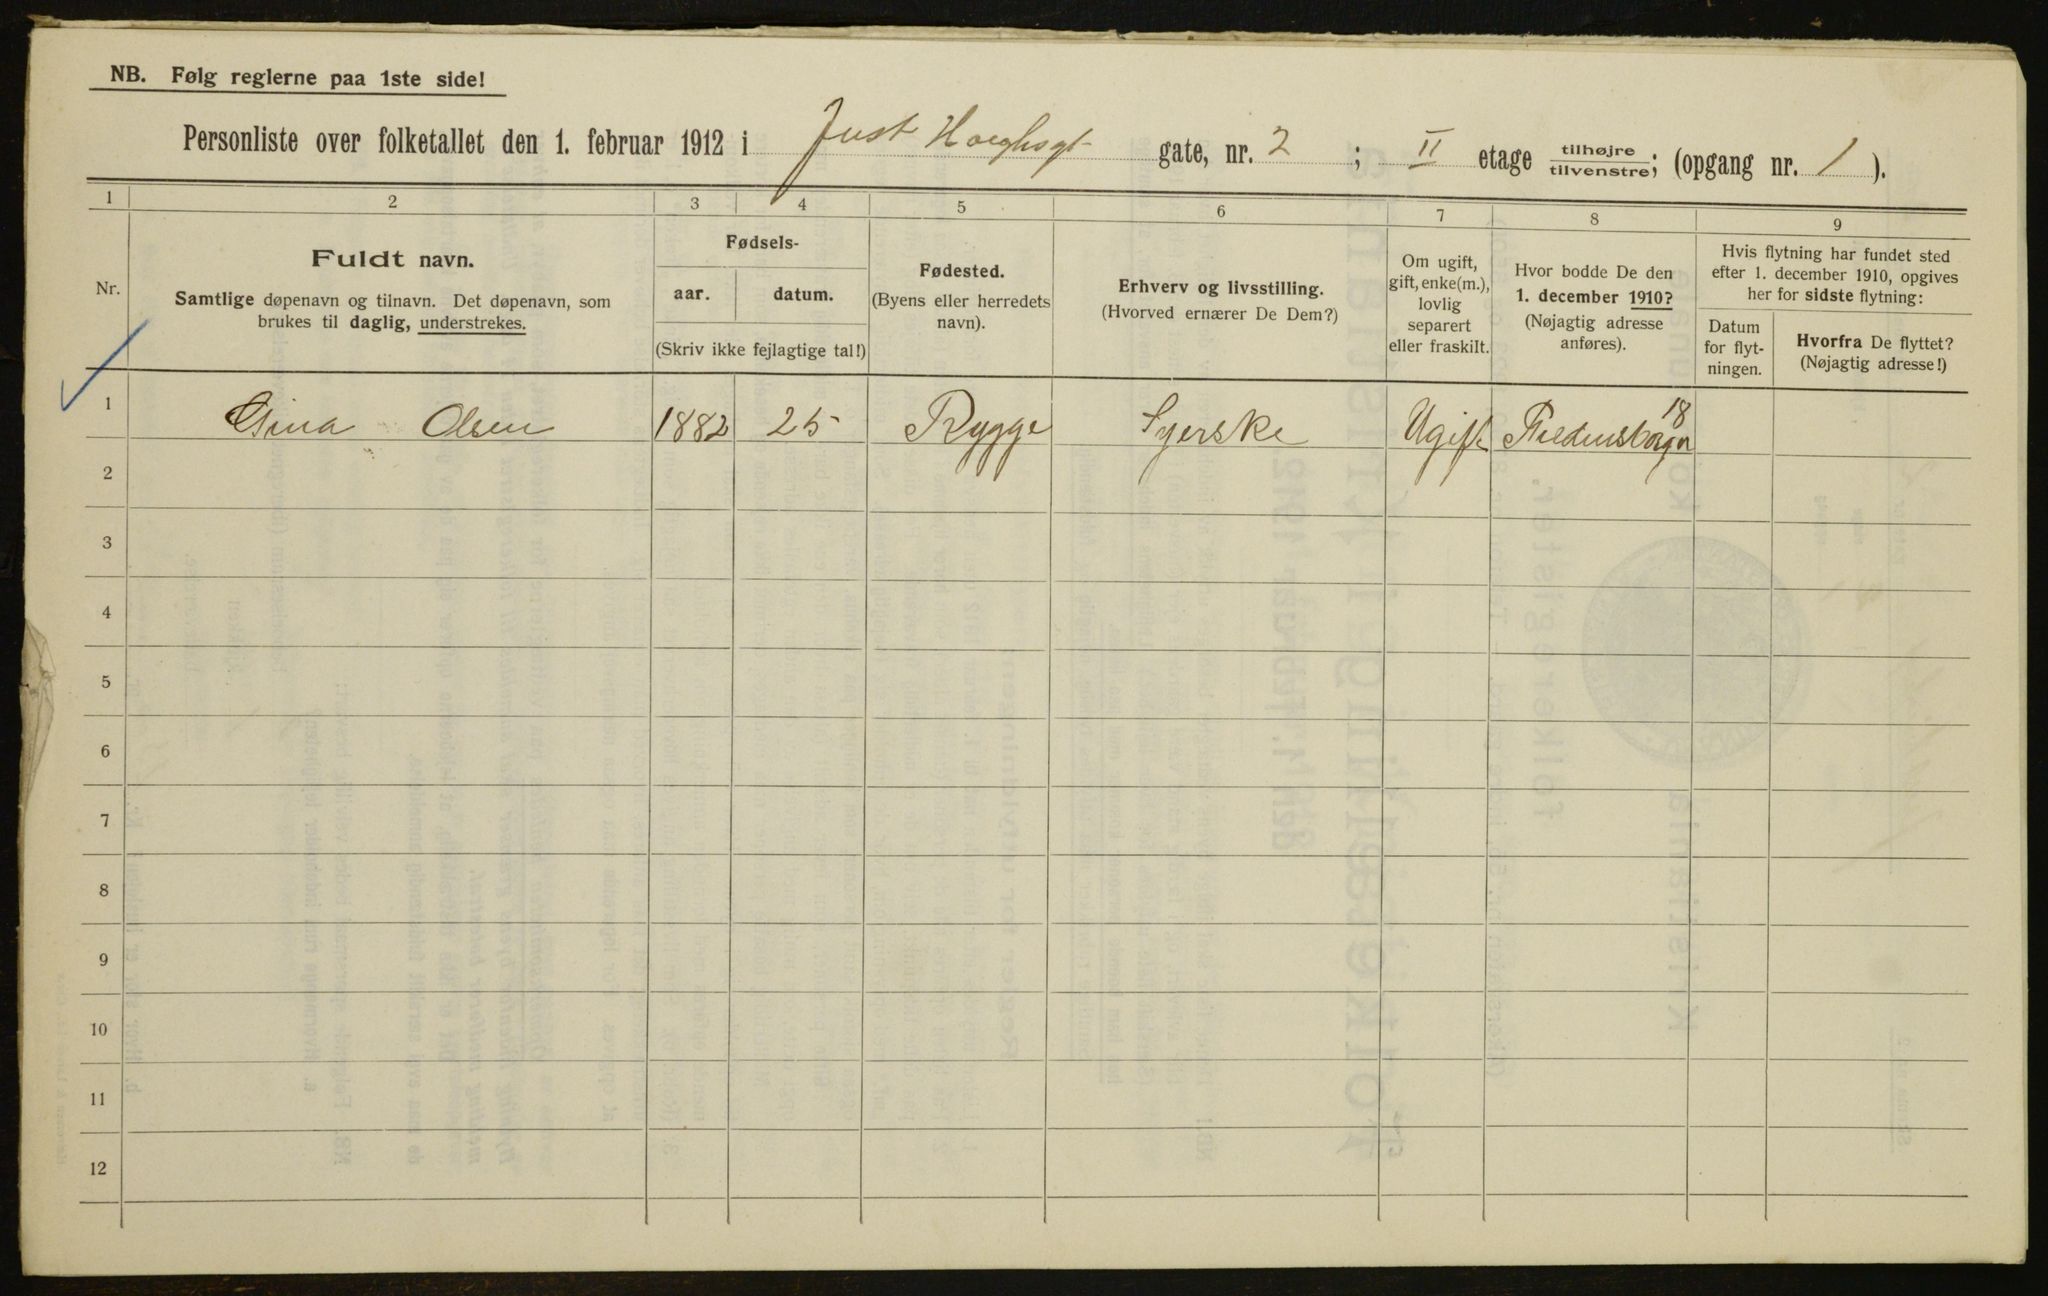 NB. Følg reglerne paa 1ste side!
Personliste over folketallet den 1. februar 1912 i Just Høeghsgt gate, nr. 2 ; II etage tilhøjre/tilvenstre; (opgang nr. 1 ).
1 2 3 4 5 6 7 8 9
Nr.
Fuldt navn.
Samtlige døpenavn og tilnavn. Det døpenavn, som
brukes til daglig, understrekes.
Fødsels-
aar. datum.
(Skriv ikke fejlagtige tal!)
Fødested.
(Byens eller herredets
navn).
Erhverv og livsstilling.
(Hvorved ernærer De Dem?)
Om ugift,
gift, enke(m.),
lovlig
separert
eller fraskilt.
Hvor bodde De den
1. december 1910?
(Nøjagtig adresse
anføres).
Hvis flytning har fundet sted
efter 1. december 1910, opgives
her for sidste flytning:
Datum
for flyt-
ningen.
Hvorfra De flyttet?
(Nøjagtig adresse!)
1 Gina Olsen 1882 25 Rygge Syerske Ugift Fredensborgv 18
2
3
4
5
6
7
8
9
10
11
12